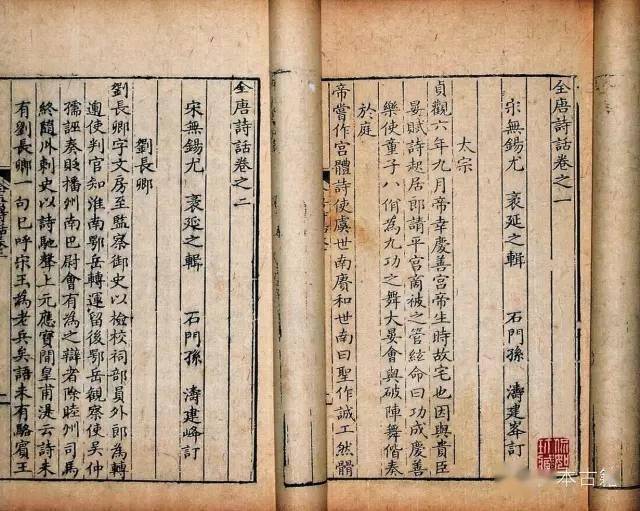 全唐詩話卷之一
宋無錫尤 袤延之輯 石門孫 濤建峯訂
太宗
貞觀六年九月帝幸慶善宮帝生時故宅也因與貴臣
晏賦詩起居郎請平宮商被之管絃命曰功成慶善
樂使童子八佾為九功之舞大晏會與破陣舞偕奏
於庭
帝嘗作宮體詩使虞世南賡和世南曰聖作誠工然體
全唐詩話卷之二
宋無錫尤 袤延之輯 石門孫 濤建峰訂
劉長卿
劉長卿字文房至監察御史以檢校祠部員外郎為轉
運使判官知淮南鄂岳轉運留後鄂岳觀察使吳仲
孺誣奏貶播州南巴尉會有為之辯者除睦州司馬
終隨州刺史以詩馳聲上元應寶間皇甫湜云詩未
有劉長卿一句已呼宋王為老兵矣語未有駱賓王
本古